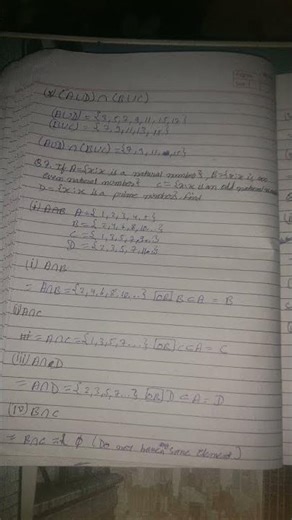 (x) (A∪D) ∩ (B∪C)
(B∪C) = {7, 9, 11, 13, 15}
Q7. If A = {x : x is a natural number}, B = {x : x is an
even natural number} C = {x : x is an odd natural number}
D = {x : x is a prime number} find
A = {1, 2, 3, 4, 5...}
B = {2, 4, 6, 8, 10...}
C = {1, 3, 5, 7, 9...}
D = {2, 3, 5, 7, 11...}
(i) A∩B
= A∩B = {2, 4, 6, 8, 10...} OR B⊂A = B
ii) A∩C
= A∩C = {1, 3, 5, 7...} OR C⊂A = C
(iii) A∩D
= A∩D = {2, 3, 5, 7...} OR D⊂A = D
(iv) B∩C
= B∩C = { φ (Do not have any same element)